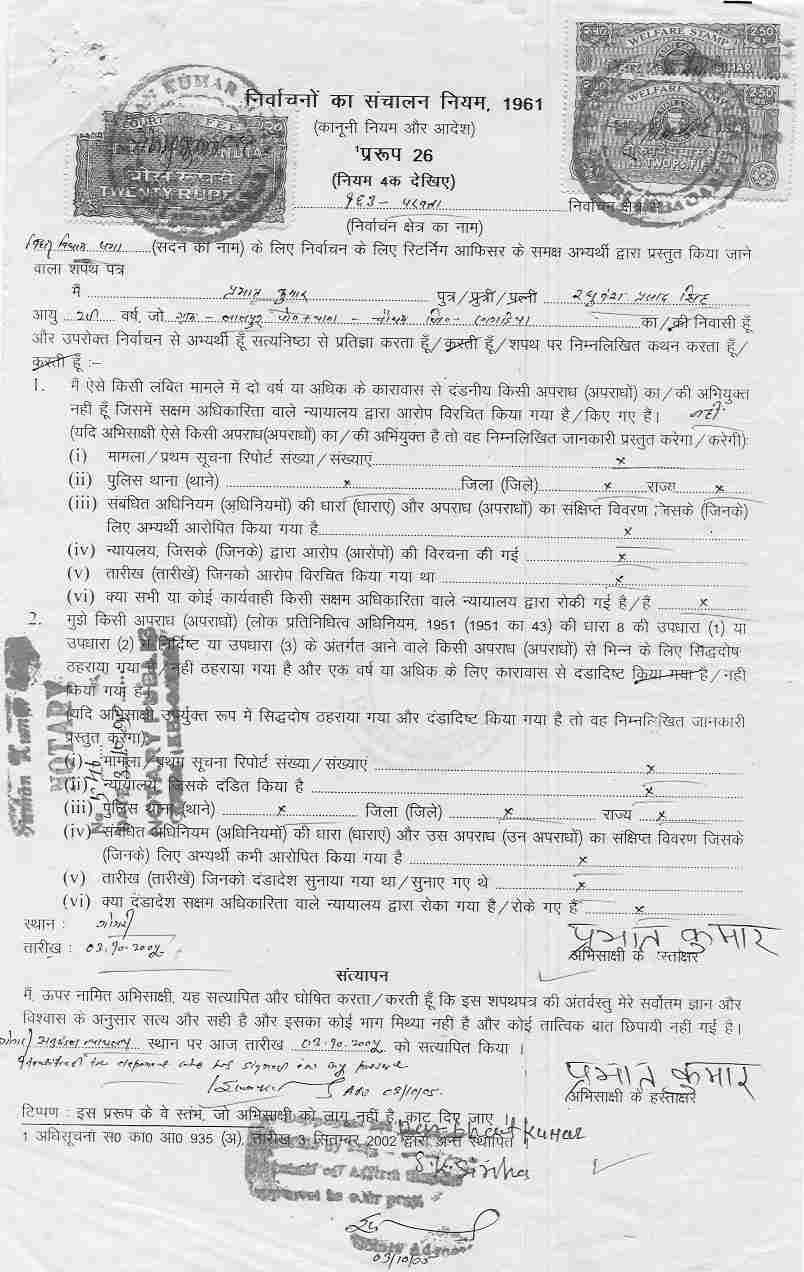 WELFARE STAMP
WELFARE STAMP
COURT FEE
INDIA
बीस रुपये
TWENTY RUPEES
निर्वाचनों का संचालन नियम, 1961
(कानूनी नियम और आदेश)
'प्ररूप 26
(नियम 4क देखिए)
१६३- परबत्ता निर्वाचन क्षेत्र से
(निर्वाचन क्षेत्र का नाम)
बिहार विधान सभा (सदन का नाम) के लिए निर्वाचन के लिए रिटर्निंग आफिसर के समक्ष अभ्यर्थी द्वारा प्रस्तुत किया जाने
वाला शपथ पत्र
मैं प्रभात कुमार पुत्र/पुत्री/पत्नी
आयु वर्ष, जो का/की निवासी हूँ
और उपरोक्त निर्वाचन से अभ्यर्थी हूँ सत्यनिष्ठा से प्रतिज्ञा करता हूँ/करती हूँ/शपथ पर निम्नलिखित कथन करता हूँ/
करती हूँ :–
1. मैं ऐसे किसी लंबित मामले में दो वर्ष या अधिक के कारावास से दंडनीय किसी अपराध (अपराधों) का/की अभियुक्त
नहीं हूँ जिसमें सक्षम अधिकारिता वाले न्यायालय द्वारा आरोप विरचित किया गया है/किए गए हैं। नहीं
(यदि अभिसाक्षी ऐसे किसी अपराध(अपराधों) का/की अभियुक्त है तो वह निम्नलिखित जानकारी प्रस्तुत करेगा/करेगी):
(i) मामला/प्रथम सूचना रिपोर्ट संख्या/संख्याएं x
(ii) पुलिस थाना (थाने) x जिला (जिले) x राज्य x
(iii) संबंधित अधिनियम (अधिनियमों) की धारा (धाराएं) और अपराध (अपराधों) का संक्षिप्त विवरण जिसके (जिनके)
लिए अभ्यर्थी आरोपित किया गया है x
(iv) न्यायालय, जिसके (जिनके) द्वारा आरोप (आरोपों) की विरचना की गई x
(v) तारीख (तारीखें) जिनको आरोप विरचित किया गया था x
(vi) क्या सभी या कोई कार्यवाही किसी सक्षम अधिकारिता वाले न्यायालय द्वारा रोकी गई है/है x
2. मुझे किसी अपराध (अपराधों) (लोक प्रतिनिधित्व अधिनियम, 1951 (1951 का 43) की धारा 8 की उपधारा (1) या
उपधारा (2) में निर्दिष्ट या उपधारा (3) के अंतर्गत आने वाले किसी अपराध (अपराधों) से भिन्न के लिए सिद्धदोष
ठहराया गया है/नहीं ठहराया गया है और एक वर्ष या अधिक के लिए कारावास से दंडादिष्ट किया गया है/नहीं
किया गया है।
(यदि अभिसाक्षी उपर्युक्त रूप में सिद्धदोष ठहराया गया और दंडादिष्ट किया गया है तो वह निम्नलिखित जानकारी
प्रस्तुत करेगा)
(i) मामला/प्रथम सूचना रिपोर्ट संख्या/संख्याएं x
(ii) न्यायालय, जिसके दंडित किया है x
(iii) पुलिस थाना (थाने) x जिला (जिले) x राज्य x
(iv) संबंधित अधिनियम (अधिनियमों) की धारा (धाराएं) और उस अपराध (उन अपराधों) का संक्षिप्त विवरण जिसके
(जिनके) लिए अभ्यर्थी कभी आरोपित किया गया है x
(v) तारीख (तारीखें) जिनको दंडादेश सुनाया गया था/सुनाए गए थे x
(vi) क्या दंडादेश सक्षम अधिकारिता वाले न्यायालय द्वारा रोका गया है/रोके गए हैं x
NOTARY
स्थान : गोगरी
तारीख : 03.10.2005
प्रभात कुमार
अभिसाक्षी के हस्ताक्षर
सत्यापन
मैं, ऊपर नामित अभिसाक्षी, यह सत्यापित और घोषित करता/करती हूँ कि इस शपथपत्र की अंतर्वस्तु मेरे सर्वोतम ज्ञान और
विश्वास के अनुसार सत्य और सही है और इसका कोई भाग मिथ्या नहीं है और कोई तात्विक बात छिपायी नहीं गई है।
स्थान पर आज तारीख 03.10.2005 को सत्यापित किया ।
Identified the deponent who has signed in my presence
Adv 03/10/05
प्रभात कुमार
अभिसाक्षी के हस्ताक्षर
टिप्पण : इस प्ररूप के वे स्तंभ, जो अभिसाक्षी को लागू नहीं है, काट दिए जाए ।
1 अधिसूचना स0 का0 आ0 935 (अ), तारीख 3 सितम्बर, 2002 द्वारा अन्त स्थापित ।
Kumar
S.K. Sinha
03/10/05